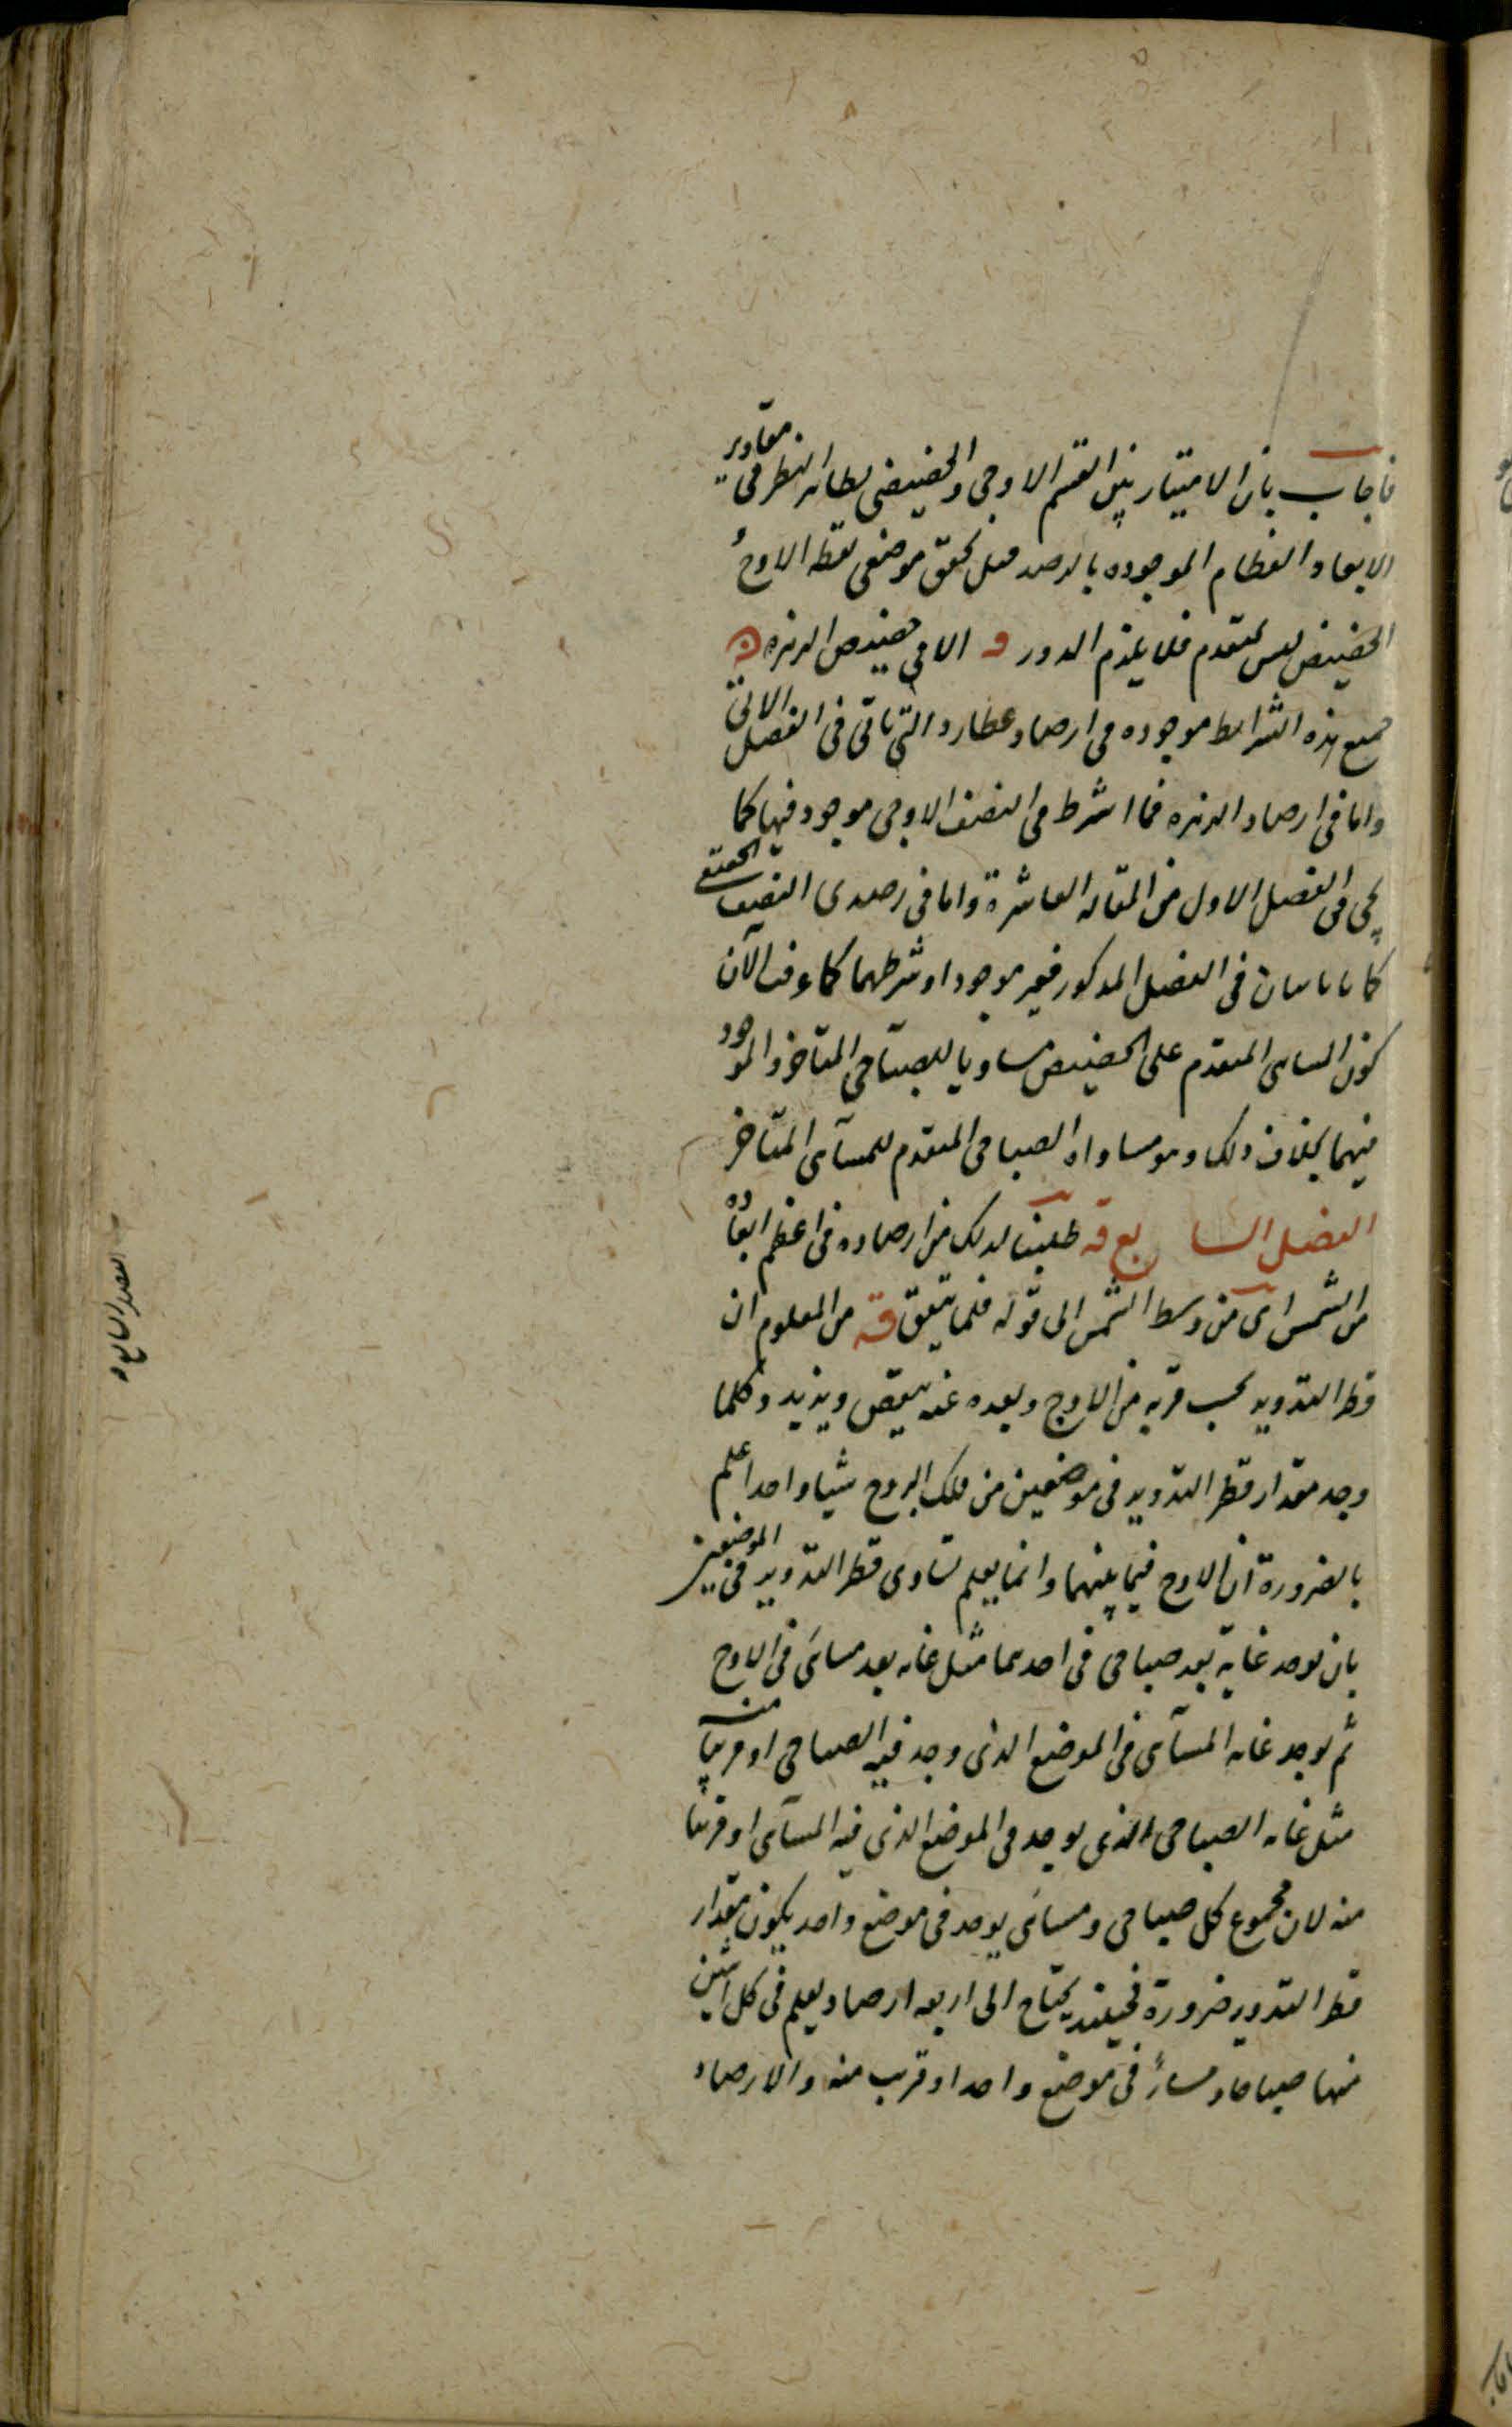 فاجاب بان الامتياز بين القسم الاوجى والحضيضى بظاهر النظر فى مقادير
الابعاد العظام الموجوده بالرصد قبل تحقق موضعى نقطه الاوج و
الحضيض ليس بمتقدم فلا يلزم الدور قـه الا فى حضيض الزهره قـه
جميع هذه الشرايط موجوده فى ارصاد عطارد التى تاتى فى الفصل الاتى
واما فى ارصاد الزهره فما اشترط فى النصف الاوجى موجود فيها كما
يجى فى الفصل الاول من المقاله العاشرة واما فى رصدى النصف الحضيضى
كما ياتيان فى الفصل المذكور فغير موجود اذ شرطهما كما عرفت الآن
كون المسائى المتقدم على الحضيض مساويا للصباحى المتاخر والموجود
فيهما بخلاف ذلك وهو مساواه الصباحى المتقدم للمسائى المتاخر
الفصل السابع قـه طلبنا لذلك من ارصاده فى اعظم ابعاده
من الشمس اى من وسط الشمس الى قوله فلما يتفق قـه من المعلوم ان
قطر التدوير بحسب قربه من الاوج وبعده عنه ينقص ويزيد وكلما
وجد مقدار قطر التدوير فى موضعين من فلك البروج شيا واحدا علم
بالضرورة ان الاوج فيما بينهما وانما يعلم تساوى قطر التدوير فى الموضعين
بان يوجد غاية بعد صباحى فى احدهما مثل غايه بعد مسائى فى الاوج
ثم يوجد غايه المسائى فى الموضع الذى وجد فيه الصباحى او قريبا منه
مثل غايه الصباحى الذى يوجد فى الموضع الذى فيه المسائى او قريبا
منه لان مجموع كل صباحى ومسائى يوجد فى موضع واحد يكون مقدار
قطر التدوير ضرورة فحينئذ يحتاج الى اربعه ارصاد يعلم فى كل اثنين
منها صباحا ومساءً فى موضع واحد او قريب منه والارصاد
الفصل السابع